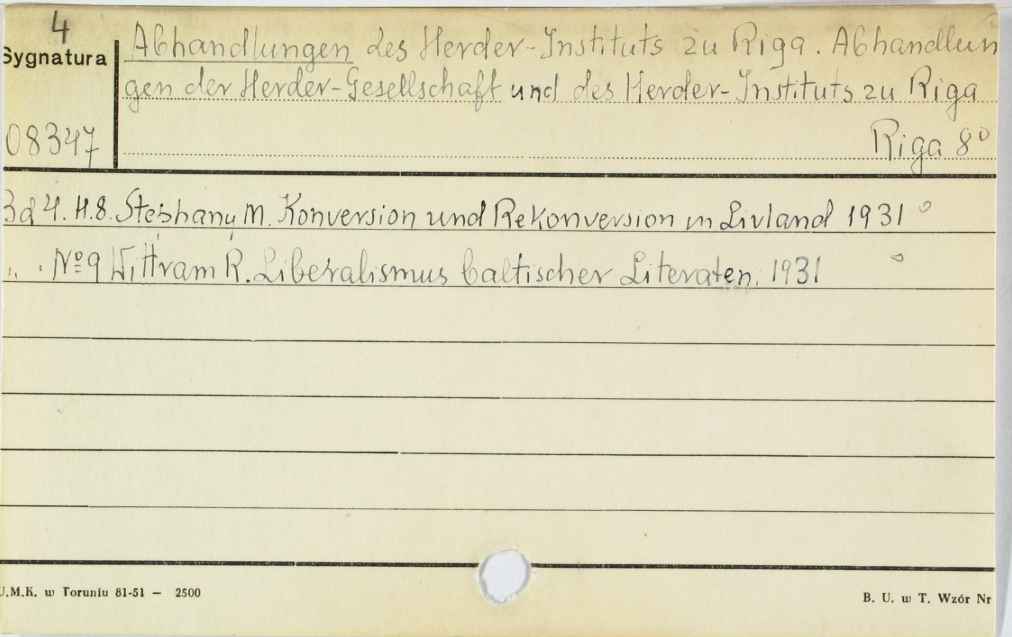 4
Sygnatura
Abhandlungen des Herder-Instituts zu Riga. Abhandlun
gen der Herder-Gesellschaft und des Herder-Instituts zu Riga
08347
Riga 8º
Bd 4. H.8. Stephany M. Konversion und Rekonversion in Livland 1931 º
„ . Nº 9 Wittram R. Liberalismus baltischer Literaten. 1931 º
U.M.K. w Toruniu 81-51 — 2500
B. U. w T. Wzór Nr